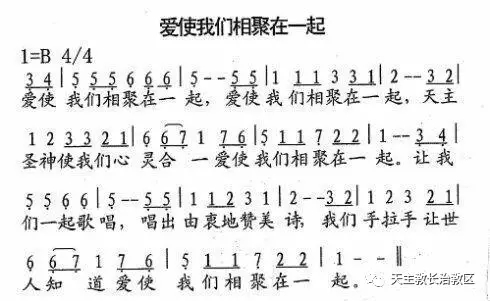 爱使我们相聚在一起
1=B 4/4
3 4 | 5 5 5 6 6 6 | 5 - - 5 5 | 1 1 1 3 3 1 | 2 - - 3 2 |
爱使 我们相聚在一 起，爱使 我 们相聚在一 起，天主
1 2 3 3 2 1 | 6 6 7 1 7 6 | 5 1 1 7 2 2 | 1 - - 3 4 |
圣神使我们心 灵合 一爱使 我们相聚在一 起。让我
5 5 6 6 | 5 - - 5 5 | 1 1 2 3 1 | 2 - - 3 2 | 1 2 3 2 1 |
们一起歌 唱，唱出 由衷地赞美 诗，我们 手拉手让世
6 6 7 1 7 6 | 5 1 1 7 2 2 | 1 - - ‖
人知 道爱使 我 们相聚在一 起。
天主教长治教区